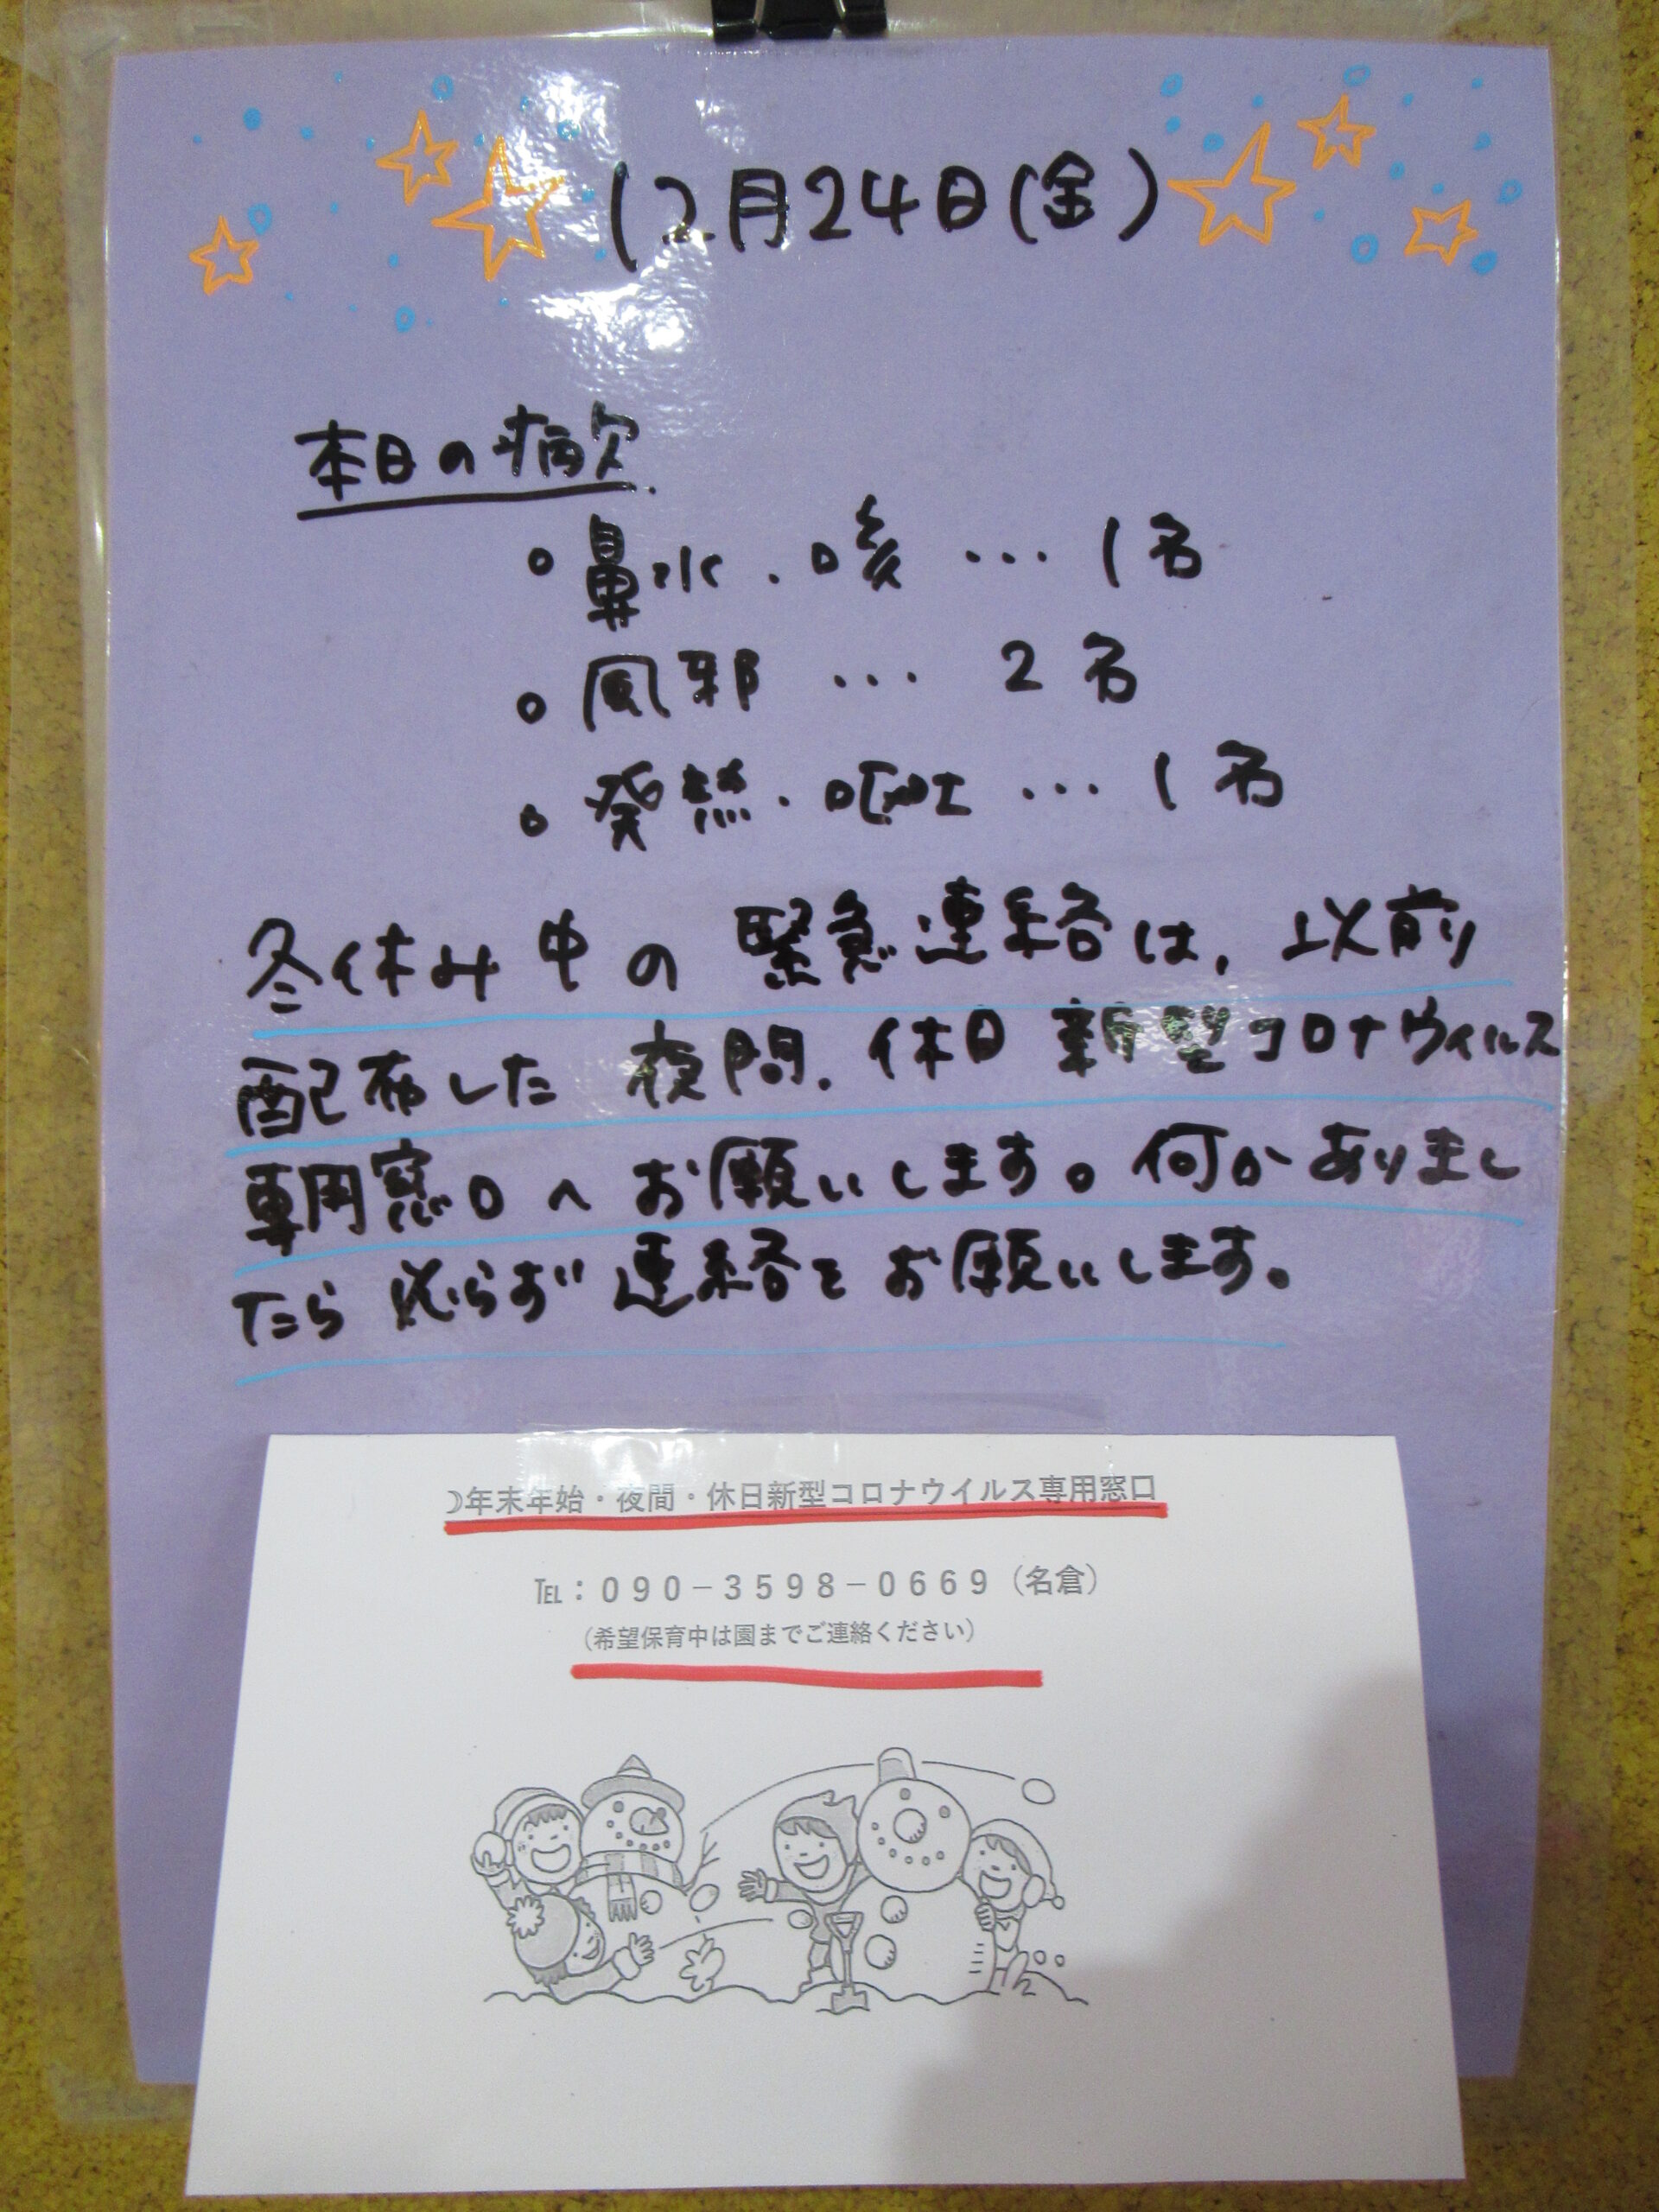 12月24日(金)
本日の病欠
・鼻水・咳 … 1名
・風邪 … 2名
・発熱・嘔吐 … 1名
冬休み中の緊急連絡は、以前
配布した 夜間、休日 新型コロナウィルス
専用窓口へお願いします。何かありまし
たら必らず連絡をお願いします。
☽年末年始・夜間・休日新型コロナウイルス専用窓口
℡：０９０－３５９８－０６６９（名倉）
（希望保育中は園までご連絡ください）